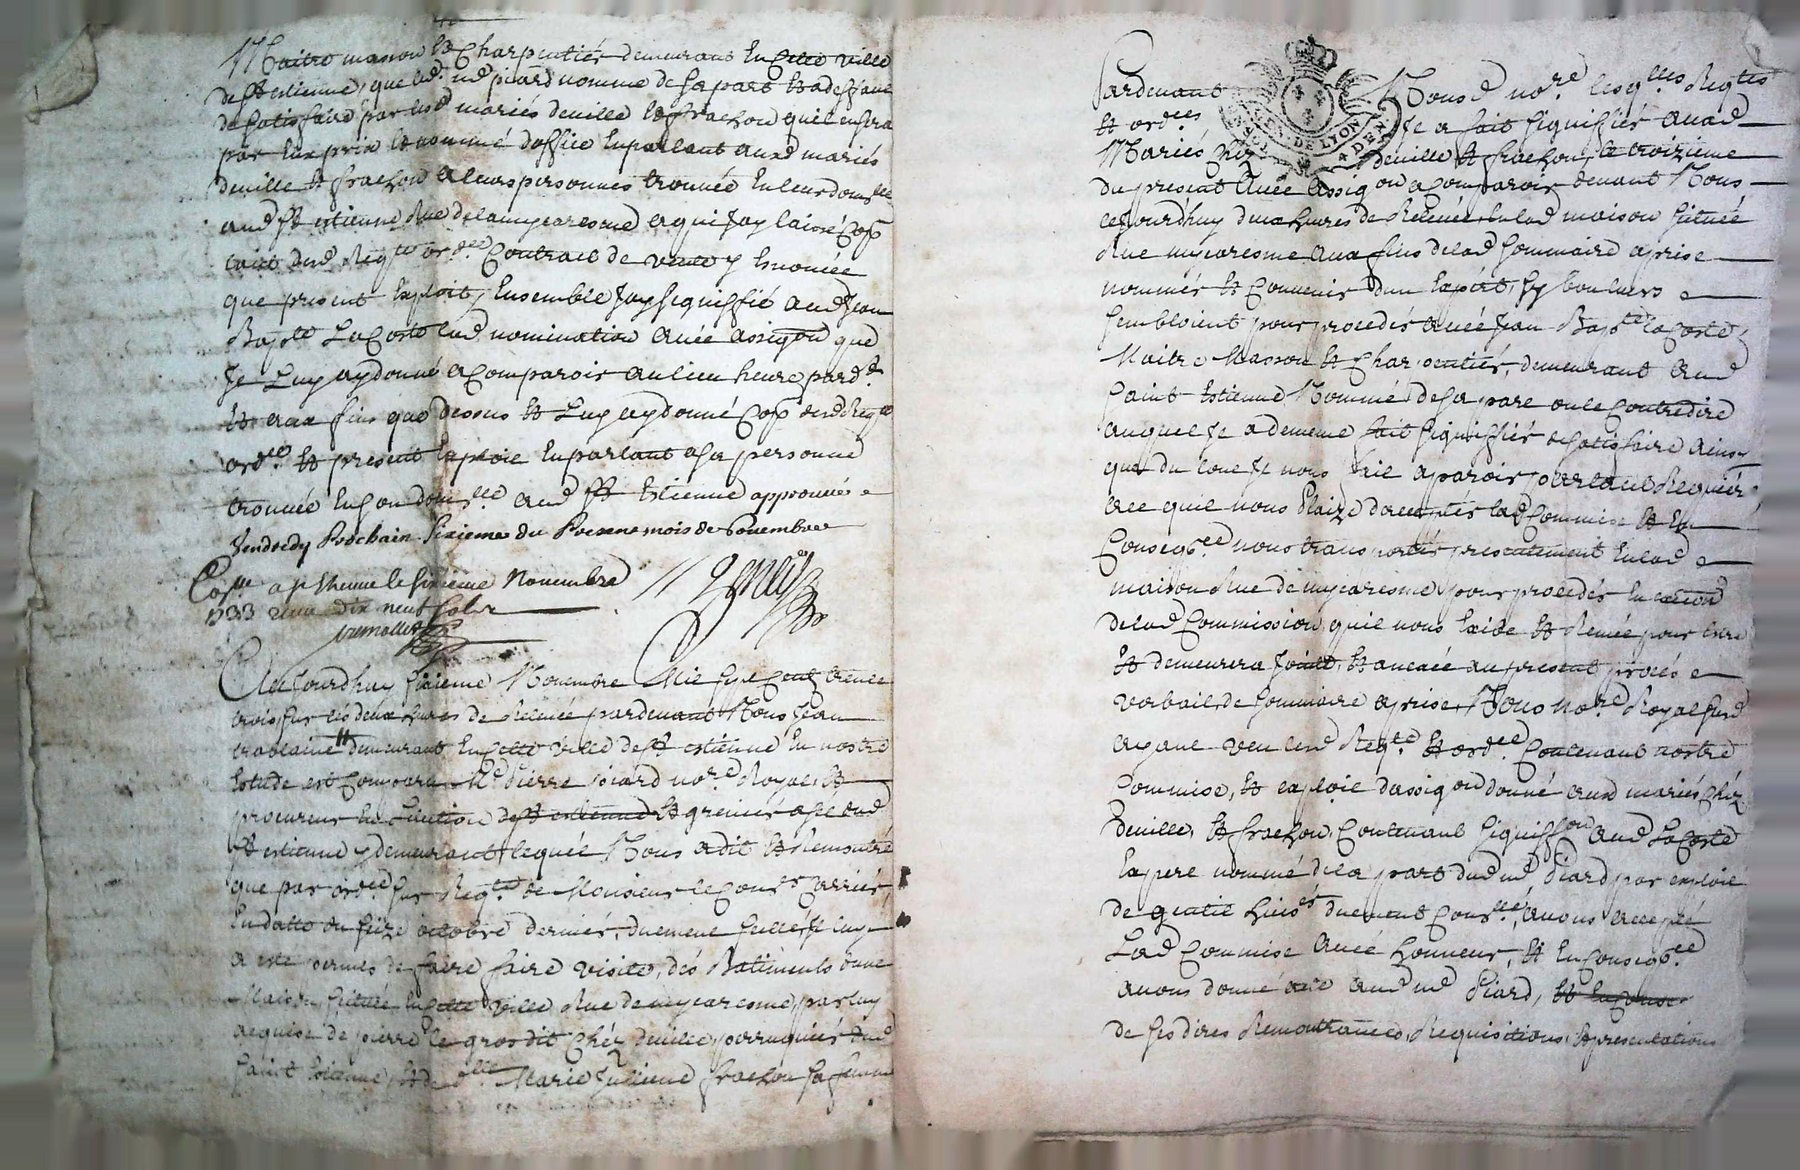 Maitre masson Et Charpentier demeurant En cette ville
de St estienne, que led. me piard nomme de sa part Et a deffaut
de satisfaire par lesd mariés deville Et frachon quil en sera
par luy pris Et nommé doffice En parlant auxd mariés
deville Et frachon a leurs personnes trouvée En leur domlle
aud St estienne Rue de la mycaresme a qui Jay laissé Cop
tant dud Reqte ordce Contract de vente y Enoncée
que present Exploit, Ensemble Jay signiffié aud Jean
Baptte LaCoste lad nomination avée assigon que
Je Luy ay donné a Comparoir au lieu heure pard.
Et aux fins que dessus Et Luy ay donné Cop desd Reqte
ordce Et present Exploit En parlant a sa personne
trouvée En son domlle aud St Estienne approuvés
Vendredy Prochain Sixieme du Present mois de Novembre
Colle a St Etienne le sixieme Novembre
1733 Reçu dix neuf sols
Aujourdhuy sixieme Novembre Mil sept cent trente
trois sur les deux heures de Relevée pardevant Nous Jean
demeurant En cette ville de St estienne En nostre
Estude est Comparu Me Pierre piard nore Royal Et
procureur En Election de St estienne Et grenier a sel dud
St estienne y demeurant, lequel Nous a dit Et Remontré
que par ordce sur Reqte de Monsieur le
En datte du seize octobre dernier, duement scellée Il luy
a esté permis de faire faire visite, des Batiments dune
Maison située En cette ville Rue de mycaresme, par luy
acquise de pierre le gros dit Chéz deville, perruquier dud
saint Estienne, Et de dlle Marie Julienne frachon sa femme
Pardevant Nousd nore lesqlles Reqtes
GEN. DE LYON 4 DEN
Et ordces Je a fait signiffiér auxd
Mariés Chéz deville Et frachon, le troizieme
du present Avée assigon a Comparoir devant Nous
cejourdhuy deux heures de Relevée En lad maison située
Rue mycaresme aux fins de lad sommaire aprise
nommér Et Convenir dun Expért,
sembloient pour procedér avée Jean Baptte laCoste
Maitre Masson Et Charpentier, demeurant aud
saint Estienne Nommé de sa part ou le Contredire
auquel Je a de meme fait signiffiér de satisfaire ainsy
que du tout Je nous fait aparoir, partant Requiér
quil nous Plaize d'acceptér lad Commise Et En
Conseqce nous transportér presentement En lad
maison Rue de mycaresme pour procedér En
de lad Commission quil nous Exibe Et Remée pour Estre
Et demeurera Jointe Et anexée au present procés
verbail de sommaire aprise, Nous nore Royal susd
ayant veu lesd Reqte Et ordce Contenant nostre
Commise, Et exploit dassigon donné auxd mariés Chéz
deville, Et frachon, Contenant signiffon aud LaCoste
Expert nommé de la part dud me Piard par exploit
de duement Conllé, avons accepté
Lad Commise avée honneur, Et En Conseqce
avons donné acte aud me Piard,
de ses dires Remontrances, Requisitions, Representations